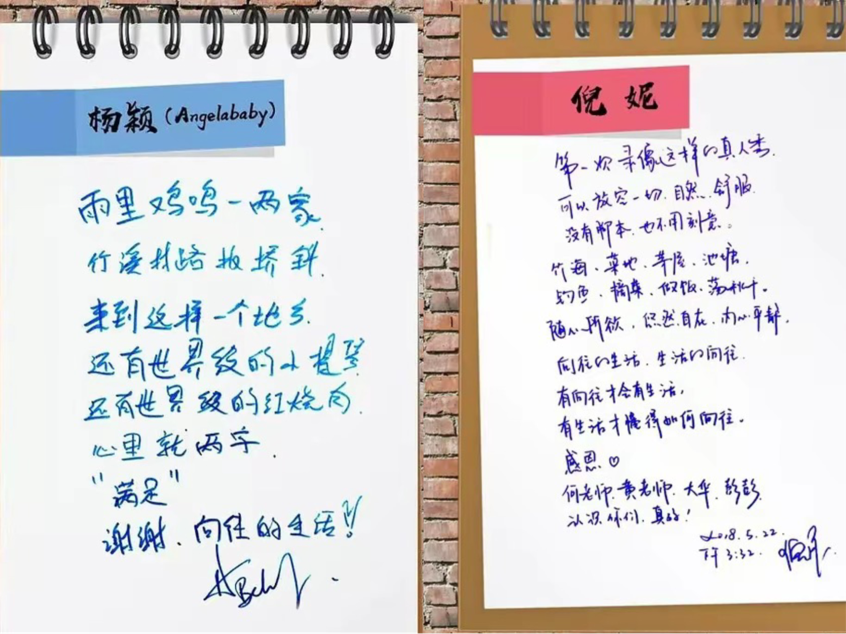 杨颖(Angelababy)
雨里鸡鸣一两家
竹溪村路板桥斜
来到这样一个地方
还有世界级的小提琴
还有世界级的红烧肉
心里就两字
"满足"
谢谢、向往的生活!!
倪妮
第一次录像这样的真人
可以放空一切.自然.舒服.
没有脚本.也不用刻意。
竹海、菜地、茅屋、池塘,
钓鱼、摘菜、做饭、荡秋千。
随心所欲,悠然自在,内心平静.
向往的生活,生活的向往.
有向往才会有生活,
有生活才懂得如何向往。
感恩♡
何老师.黄老师.大华.彭彭.
认识你们,真好!
2018.5.22.
下午3:32.